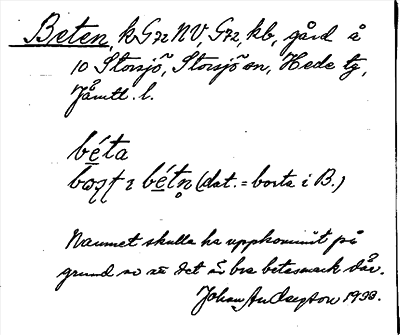 Beten, kG72NV, G72, kb, gård å
10 Storsjö, Storsjö sn, Hede tg,
Jämtl. l.
béta
i bétn (dat. = borta i B.)
Namnet skulle ha uppkommit på
grund av att det är bra betesmark där.
Johan Andersson 1933.